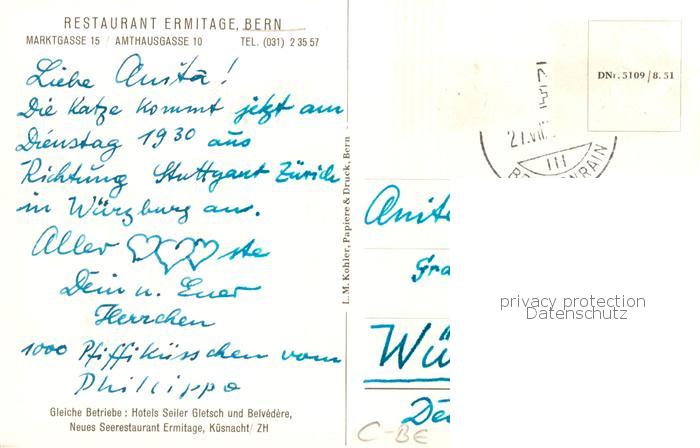 RESTAURANT ERMITAGE, BERN
MARKTGASSE 15 / AMTHAUSGASSE 10 TEL. (031) 2 35 57
Liebe Anita!
Die Katze kommt jetzt am
Dienstag 19 30 aus
Richtung Stuttgart Zürich
in Würzburg an.
Aller ste
Dein u. Euer
Herrchen
1000 Pfiffiküsschen vom
Philippo
Gleiche Betriebe: Hotels Seiler Gletsch und Belvédère,
Neues Seerestaurant Ermitage, Küsnacht/ZH
L. M. Kohler, Papiere & Druck, Bern
DNr. 5109/8.51
27.VII.
III
RAIN
Anit
Gra
Wü
De
C-BE
privacy protection
Datenschutz